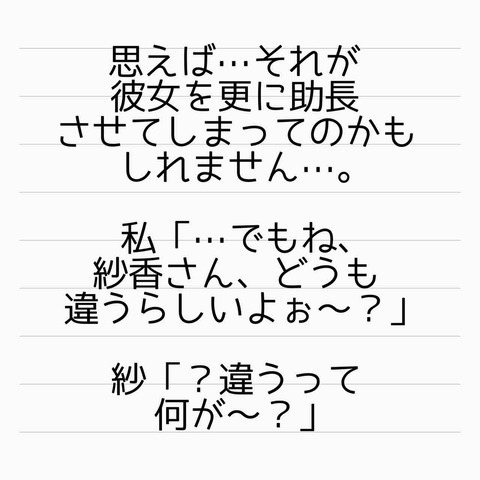 思えば…それが
彼女を更に助長
させてしまってのかも
しれません…。
私「…でもね、
紗香さん、どうも
違うらしいよぉ～？」
紗「？違うって
何が～？」